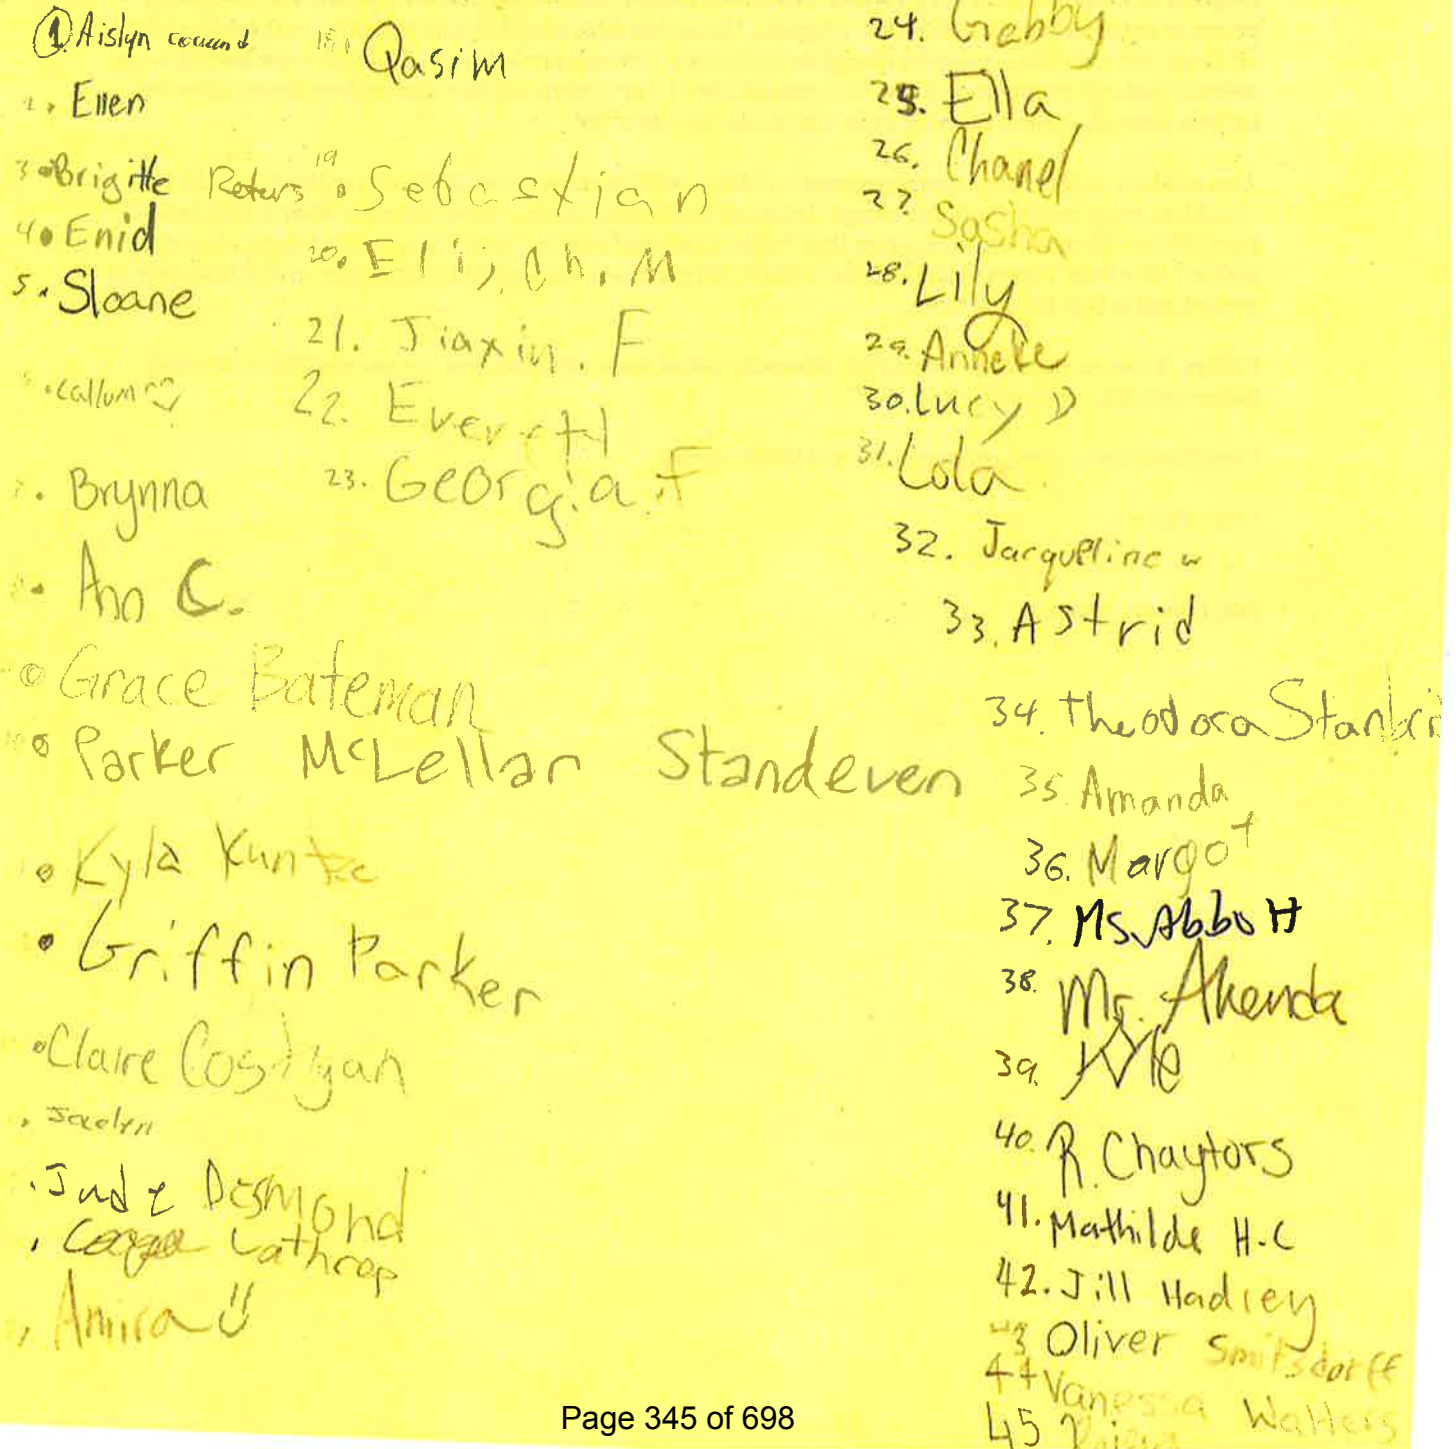 1. Aislyn
. Ellen
3. Brigitte Peters
4. Enid
5. Sloane
. Callum
. Brynna
. Ann C.
Grace Bateman
Parker McLellan Standeven
Kyla Kuntze
Griffin Parker
Claire Costigan
Jocelyn
Jude Desmond
Lathrop
Amira
18. Qasim
19. Sebastian
20. Eli, Ch. M
21. Jiaxin. F
22. Everett
23. Georgia. F
24. Gabby
25. Ella
26. Chanel
27. Sasha
28. Lily
29. Anneke
30. Lucy
31. Lola
32. Jacqueline w
33. Astrid
34. Theodora
35. Amanda
36. Margot
37. Ms. Abbott
38. Mr. Akenda
39. Kyle
40. R. Chaytors
41. Mathilde H-C
42. Jill Hadley
43 Oliver
44 Vanessa Walters
45
Page 345 of 698